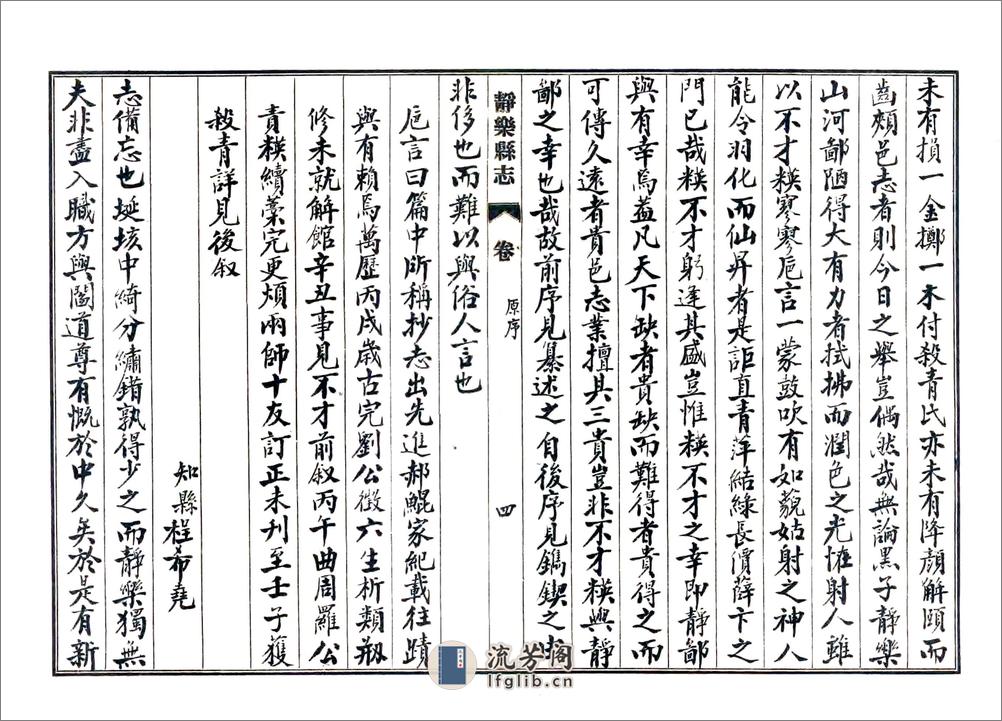 未有損一金擲一木付殺青氏亦未有降顏解頤而
齒頰邑志者則今日之舉豈偶然哉無論黑子靜樂
山河鄙陋得大有力者拭拂而潤色之光恠射人雖
以不才模寥寥巵言一蒙鼓吹有如藐姑射之神人
能令羽化而仙昇者是詎直青萍結綠長價薛卞之
門已哉模不才躬逢其盛豈惟模不才之幸即靜鄙
與有幸焉蓋凡天下缺者貴缺而難得者貴得之而
可傳久遠者貴邑志業擅其三貴豈非不才模與靜
鄙之幸也哉故前序見纂述之自後序見鐫鍥之
非侈也而難以與俗人言也
巵言曰篇中所稱抄志出先進郝鯤家紀載往蹟
與有賴焉萬歷丙戌歲古完劉公徵六生析類
修未就解館辛丑事見不才前叙丙午曲周羅公
責模續藁完更煩兩師十友訂正未刊至壬子獲
殺青詳見後叙
知縣程希堯
志備忘也埏垓中綺分繡錯孰得少之而靜樂獨無
夫非盡入職方與閻道尊有慨於中久矣於是有新
靜樂縣志
卷
原序
四
流芳阁
lfglib.cn